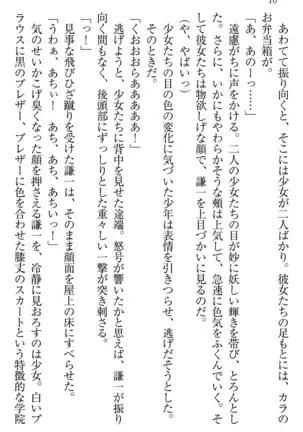 10
あわてて振り向くと、そこには少女が二人ばかり。彼女たちの手には、カラの
お弁当箱が。
「あ、あのーっ……」
遠慮がちに声をかける。二人の少女たちの目が妙に妖しい輝きを帯び、とろんとし
た。さらに、いかにもやわらかそうな頰は上気して、急速に色気をふくんでいく。そ
して彼女たちは物欲しげな顔で、謙一を上目づかいに見るのだ。
（や、やばいっ）
少女たちの目の色の変化に気づいた少年は表情を引きつらせ、逃げだそうとした。
そのときだ。
「くぉおおらあああああ！」
逃げようと、少女たちに背中を見せた途端。怒号が響いたかと思えば、謙一が振り
向く間もなく、後頭部にずっしりとした重々しい一撃が突き刺さる。
「っ！」
見事な飛びひざ蹴りを受けた謙一は、そのまま顔面を屋上の床にすべらせた。
「うわぁ、あちぃー！　あち、あち、あちいっ！」
気のせいかこげ臭くなった顔を押さえる謙一を、冷静に見おろすのは少女。白いブ
ラウスに黒のブレザー、ブレザーに色を合わせた膝丈のスカートという特徴的な学院